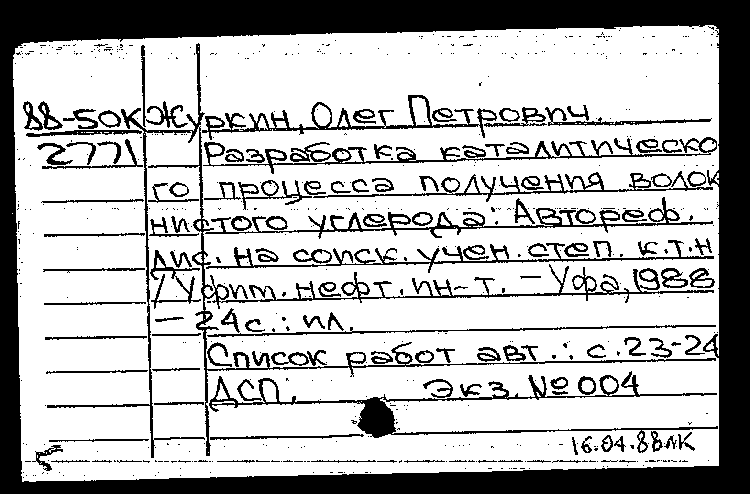 88-50К Журкин, Олег Петрович.
2771 Разработка каталитическо
го процесса получения волок
нистого углерода: Автореф.
дис. на соиск. учен. степ. к.т.н
/ Уфим. нефт. ин-т. — Уфа, 1988
— 24с.: ил.
Список работ авт.: с.23-24
ДСП. Экз. №004
16.04.88лк